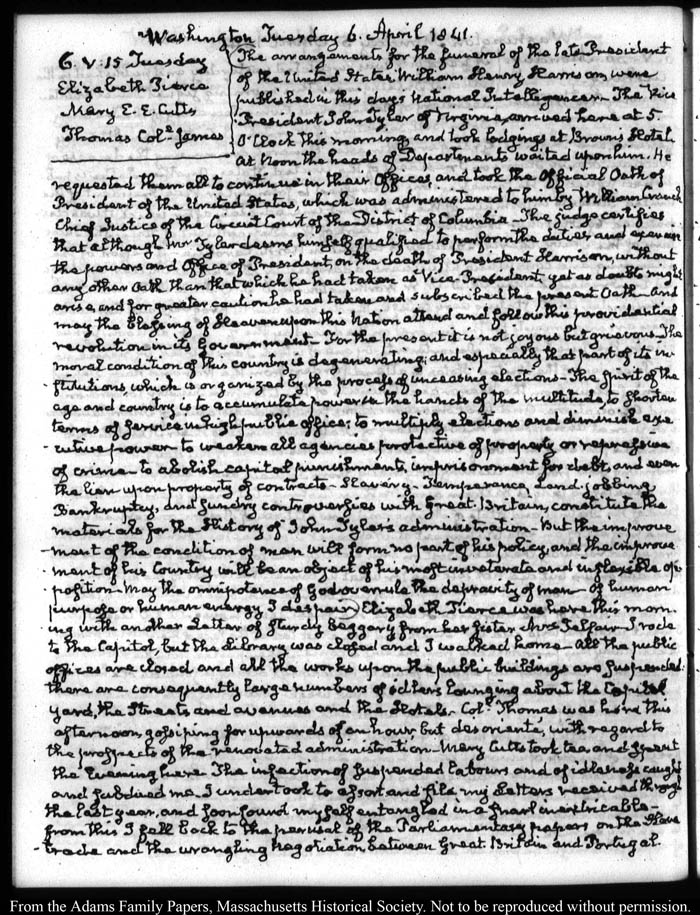 Washington Tuesday 6. April 1841.
6. V:15 Tuesday
Elizabeth Pierce
Mary E. E. Cutts
Thomas Col.e James
The arrangements for the funeral of the late President
of the United States William Henry Harrison, were
published in this days National Intelligencer. The Vice
President John Tyler of Virginia, arrived here at 5.
O'Clock this morning and took lodgings at Brown's Hotel.
At Noon the heads of Departments waited upon him. He
requested them all to continue in their Offices, and took the Official Oath of
President of the United States, which was administered to him by William Cranch
Chief Justice of the Circuit Court of the District of Columbia. The judge certifies
that although Mr Tyler deems himself qualified to perform the duties and exercise
the powers and Office of President, on the death of President Harrison, without
any other Oath than that which he had taken as Vice-President, yet as doubts might
arise, and for greater caution he had taken and subscribed the present Oath. And
may the blessing of Heaven upon this Nation attend and follow this providential
revolution in its Government. For the present it is not joyous but grievous. The
moral condition of this country is degenerating; and especially that part of its in-
stitutions which is organized by the process of unceasing elections. The spirit of the
age and country is to accumulate power in the hands of the multitude, to shorten
terms of service in high public office; to multiply elections and diminish exe-
cutive power. to weaken all agencies protective of property or repressive
of crime. to abolish capital punishments, imprisonment for debt, and even
the lien upon property of contracts. Slavery. Temperance, Land-jobbing,
Bankruptcy, and sundry controversies with Great-Britain, constitute the
materials for the History of John Tyler's administration. But the improve-
ment of the condition of man will form no part of his policy, and the improve-
ment of his Country will be an object of his most inveterate and inflexible op-
position. May the omnipotence of God overrule the depravity of man. of human
purpose or human energy, I despair) Elizabeth Pierce was here this morn-
ing with another Letter of Sturdy Beggary from her Sister Mrs Telfair. I rode
to the Capitol, but the Library was closed and I walked home. All the public
offices are closed and all the works upon the public buildings are suspended:
there are consequently large numbers of idlers lounging about the Capitol
yard, the Streets and avenues and the Hotels. Col.e Thomas was here this
afternoon, gossiping for upwards of an hour, but desorienté, with regard to
the prospects of the renovated administration. Mary Cutts took tea and spent
the Evening here. The infection of suspended labours and of idleness caught
and subdued me. I undertook to assort and file my Letters received through
the last year, and soon found myself entangled in a snarl inextricable.
from this I fall back to the perusal of the Parliamentary papers on the Slave
trade and the wrangling Negotiation between Great-Britain and Portugal.
From the Adams Family Papers, Massachusetts Historical Society. Not to be reproduced without permission.